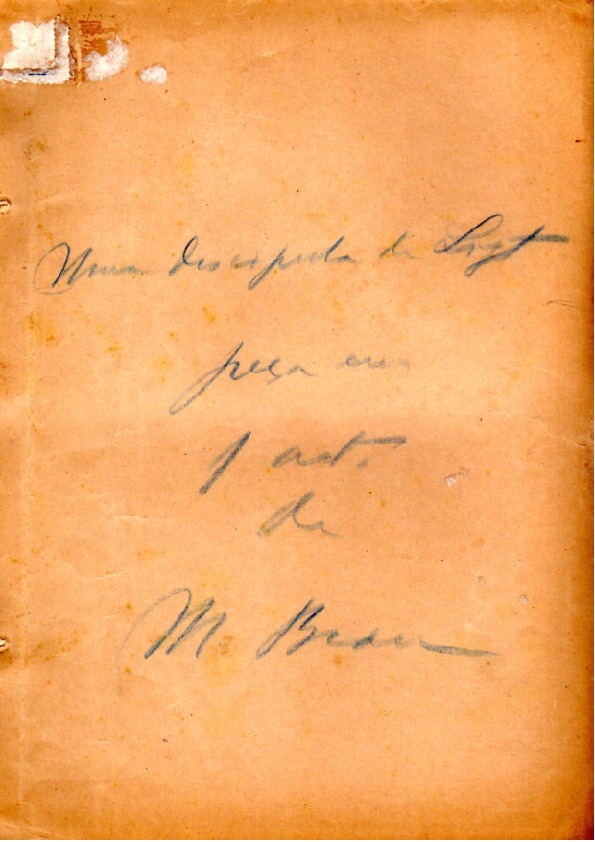 Uma discipula de Liszt
peça em
1 act.
de
M.